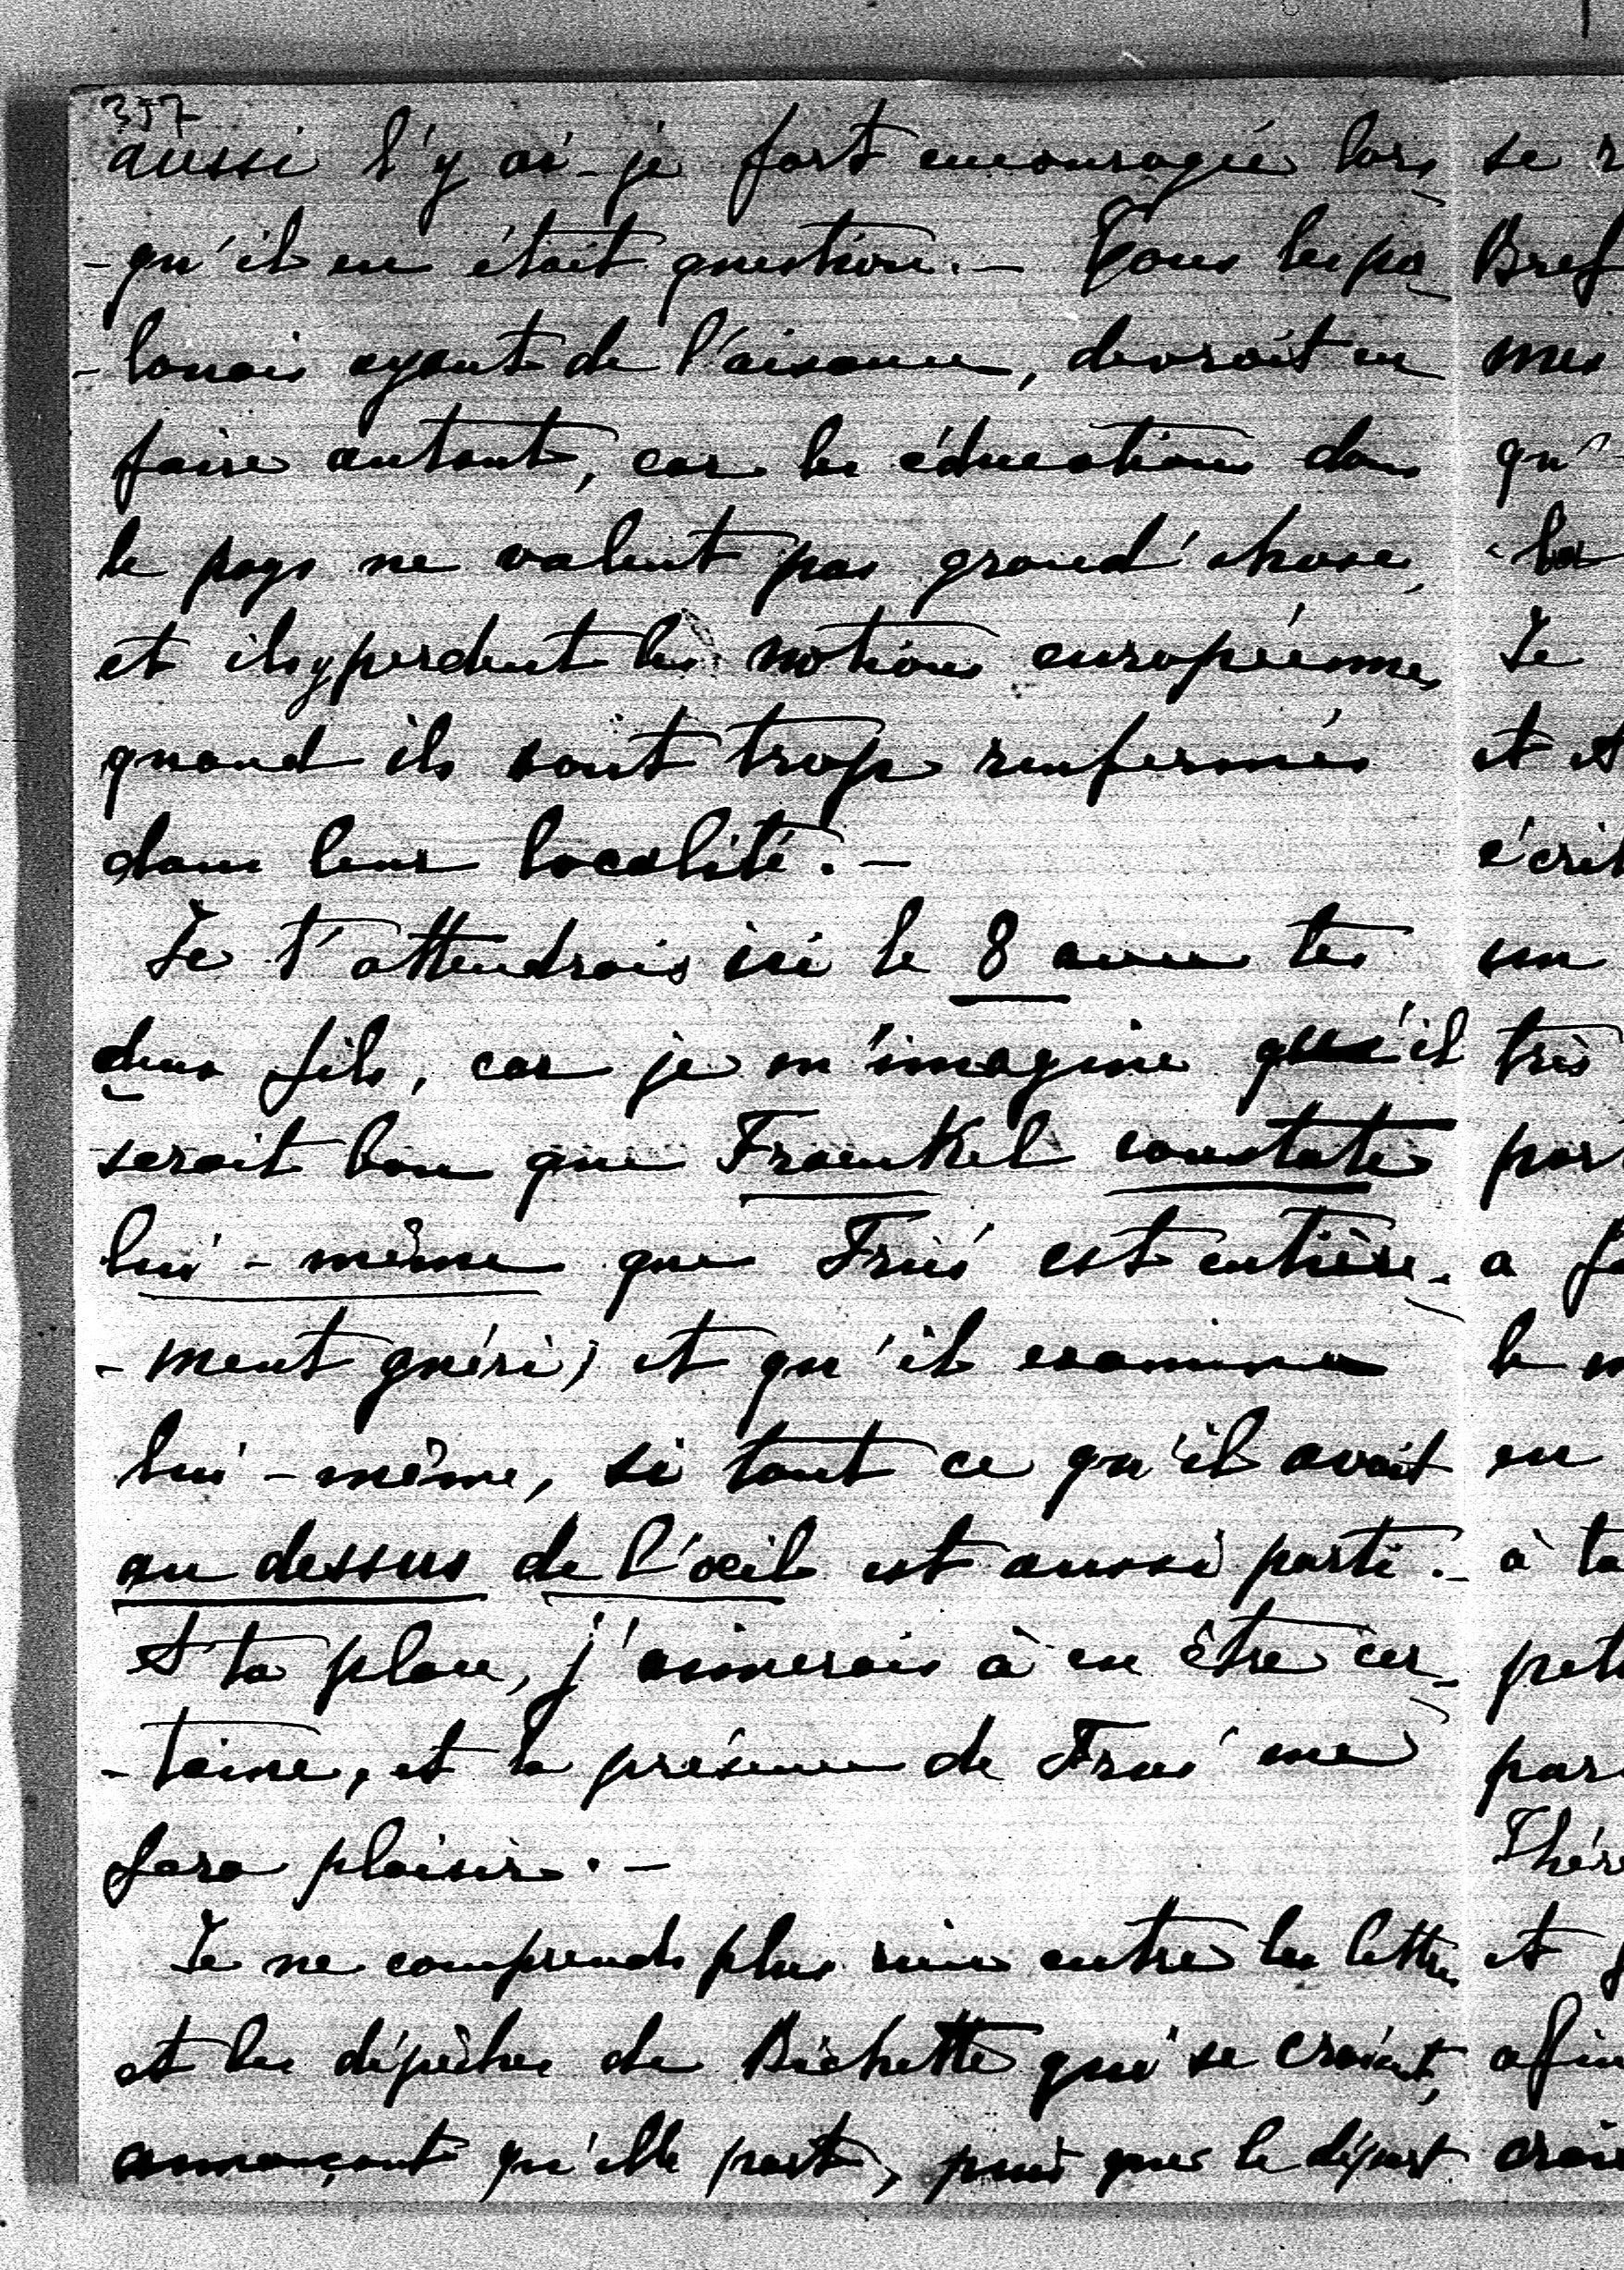 357
aussi l'y ai-je fort encouragée lors
-qu'il en était question.— Tous les po
-lonais ayant de l'aisance, devrait en
faire autant, car les éducations dans
le pays ne valent pas grand'chose,
et ils y perdent les notions européennes
quand ils sont trop renfermés
dans leur localité.—
Je t'attendrais ici le 8 avec tes
deux fils, car je m'imagine qu'il
serait bon que Fraenkel constate
lui-même que est entière-
-ment guéri, et qu'il examine
lui-même, si tout ce qu'il avait
au dessus de l'oeil est aussi parti.-
A ta place, j'aimerais à en être cer-
-taine, et la présence de me
fera plaisir.—
Je ne comprends plus rien entre les lettres
et les dépêches de Bichette qui se croisent,
annonçant qu'elle part, puis que le départ
se
Bref
mes
qu'
Je
et
écrit
un
très
par
a
le
en
à ta
pet
par
Thér
et
afin